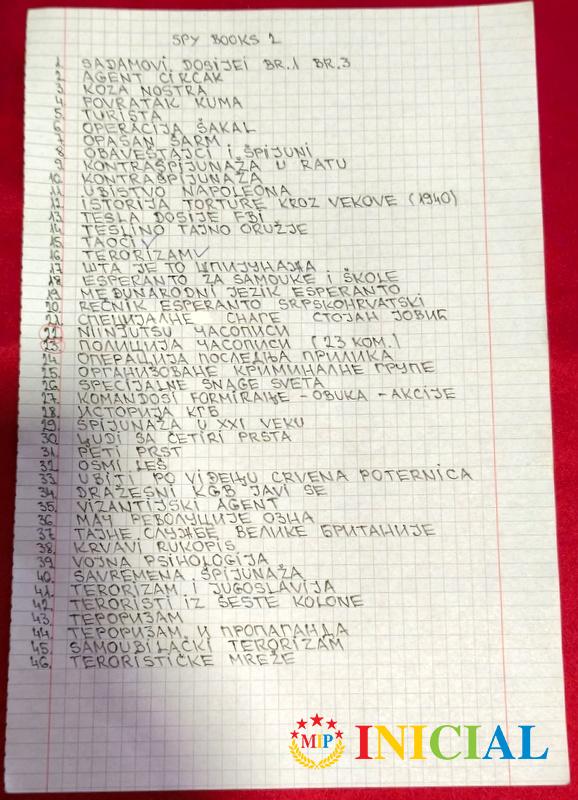 SPY BOOKS 2
1. SADAMOVI DOSIJEI BR.1 BR.3
2. AGENT CIRCAK
3. KOZA NOSTRA
4. POVRATAK KUMA
5. TURISTA
6. OPERACIJA ŠAKAL
7. OPASAN ŠARM
8. OBAVEŠTAJCI I ŠPIJUNI
9. KONTRAŠPIJUNAŽA U RATU
10. KONTRAŠPIJUNAŽA
11. UBISTVO NAPOLEONA
12. ISTORIJA TORTURE KROZ VEKOVE (1940)
13. TESLA DOSIJE FBI
14. TESLINO TAJNO ORUŽJE
15. TAOCI ✓
16. TERORIZAM ✓
17. ШТА ЈЕ ТО ШПИЈУНАЖА
18. ESPERANTO ZA SAMOUKE I ŠKOLE
19. MEĐUNARODNI JEZIK ESPERANTO
20. REČNIK ESPERANTO SRPSKOHRVATSKI
21. СПЕЦИЈАЛНЕ СНАГЕ СТОЈАН ЈОВИЋ
22. NINJUTSU ЧАСОПИСИ
23. ПОЛИЦИЈА ЧАСОПИСИ (23 КОМ.)
24. ОПЕРАЦИЈА ПОСЛЕДЊА ПРИЛИКА
25. ОРГАНИЗОВАНЕ КРИМИНАЛНЕ ГРУПЕ
26. SPECIJALNE SNAGE SVETA
27. KOMANDOSI FORMIRANJE - OBUKA - AKCIJE
28. ИСТОРИЈА КГБ
29. ŠPIJUNAŽA U XXI VEKU
30. LJUDI SA ČETIRI PRSTA
31. PETI PRST
32. OSMI LEŠ
33. UBITI PO VIĐENJU CRVENA POTERNICA
34. DRAŽESNI KGB JAVI SE
35. VIZANTIJSKI AGENT
36. МАЧ РЕВОЛУЦИЈЕ ОЗНА
37. ТАЈНЕ СЛУЖБЕ ВЕЛИКЕ БРИТАНИЈЕ
38. KRVAVI RUKOPIS
39. VOJNA PSIHOLOGIJA
40. SAVREMENA ŠPIJUNAŽA
41. TERORIZAM I JUGOSLAVIJA
42. TERORISTI IZ ŠESTE KOLONE
43. ТЕРОРИЗАМ
44. ТЕРОРИЗАМ И ПРОПАГАНДА
45. SAMOUBILAČKI TERORIZAM
46. TERORISTIČKE MREŽE
MIP INICIAL